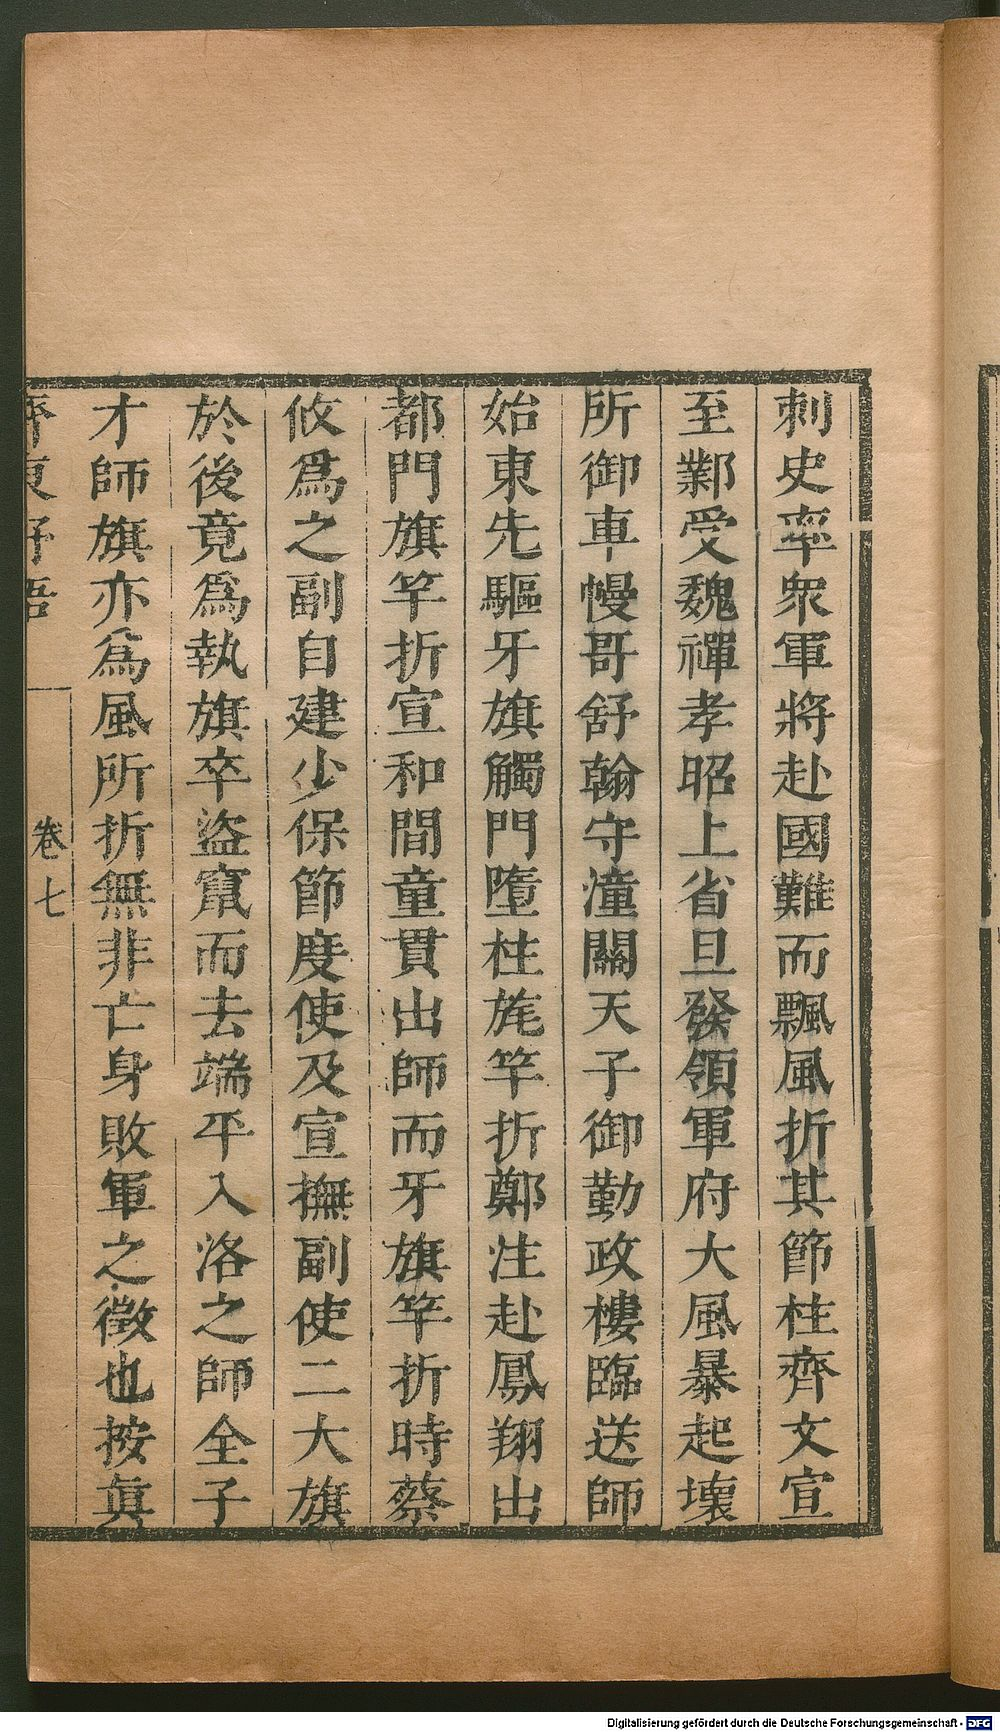 刺史率衆軍將赴國難而飄風折其節柱齊文宣
至鄴受魏禪孝昭上省旦發領軍府大風暴起壞
所御車幔哥舒翰守潼關天子御勤政樓臨送師
始東先驅牙旗觸門墮柱旄竿折鄭注赴鳳翔出
都門旗竿折宣和間童貫出師而牙旗竿折時蔡
攸爲之副自建少保節度使及宣撫副使二大旗
於後竟爲執旗卒盜竄而去端平入洛之師全子
才師旗亦爲風所折無非亡身敗軍之徵也按眞
齊東野語
卷七
Digitalisierung gefördert durch die Deutsche Forschungsgemeinschaft - DFG